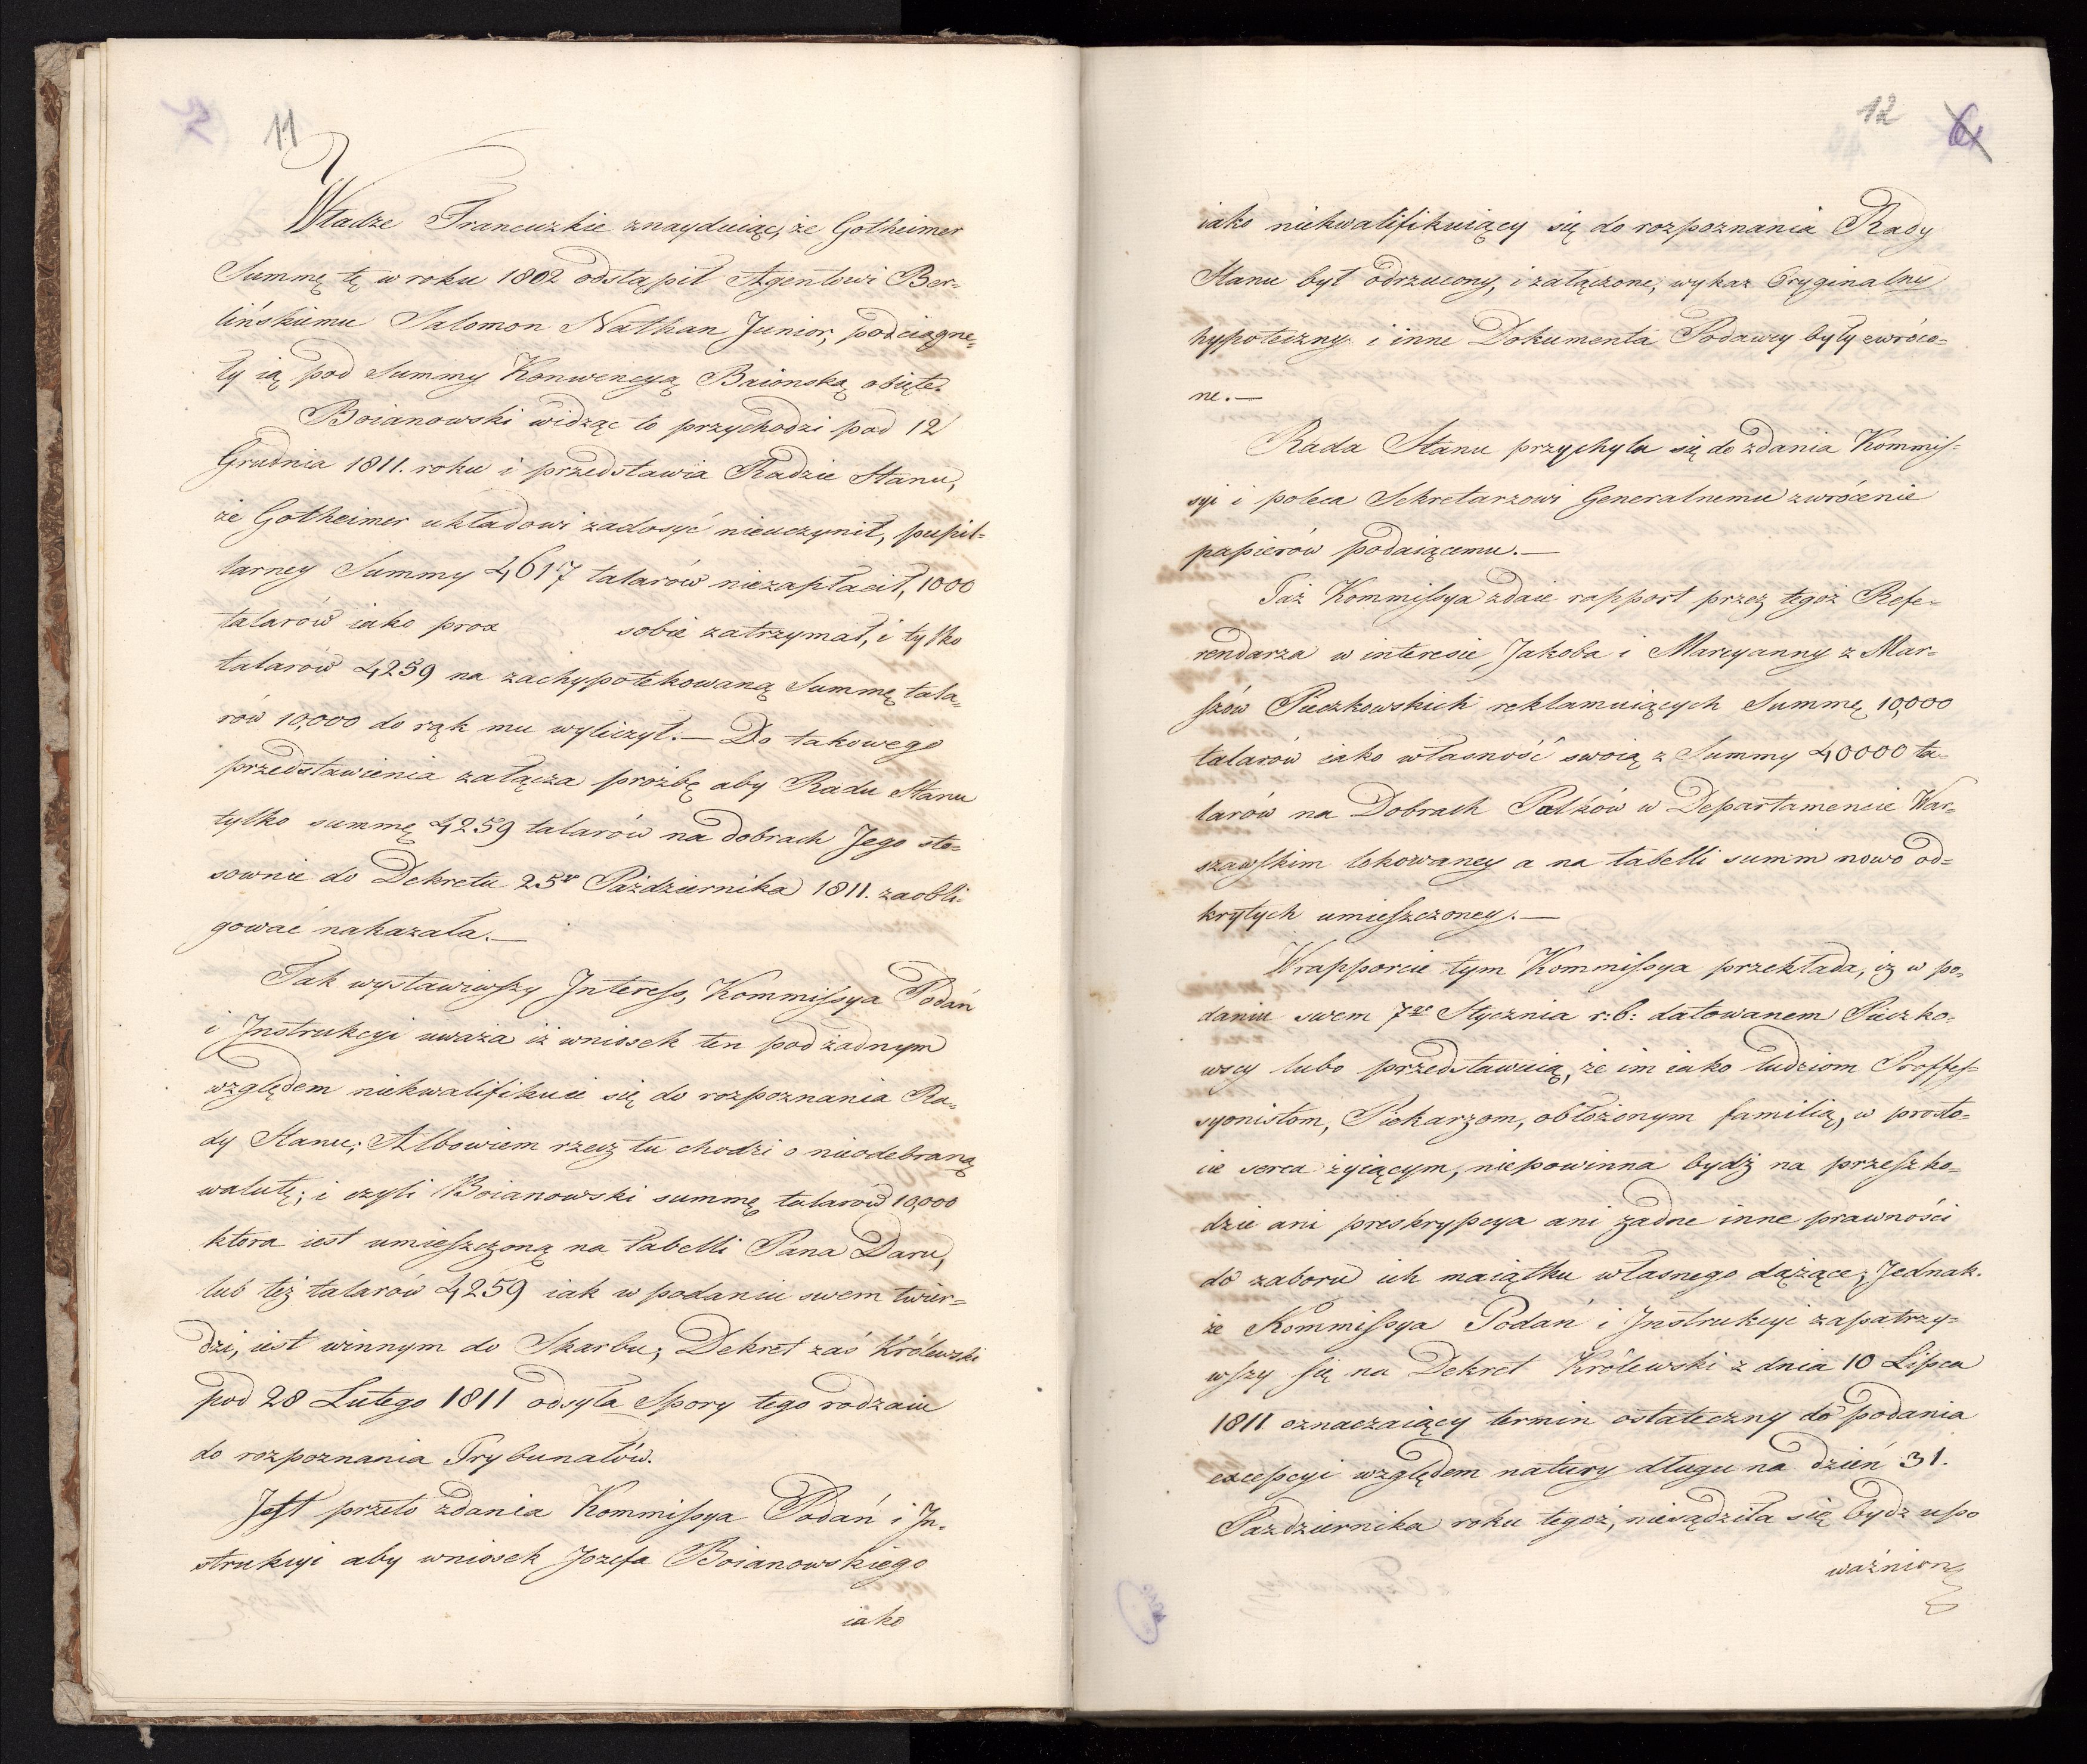 11
Władze Francuzkie znayduiąc, że Gotheimer
Summę tę w roku 1802 odstąpił Agentowi Ber-
lińskiemu Salomon Nathan Junior, podciągnę-
ły ią pod Summy Konwencyą Baionską obięte.
Boianowski widząc to przychodzi pod 12
Grudnia 1811. roku i przedstawia Radzie Stanu,
że Gotheimer układowi zadosyć nieuczynił, pupil-
larney Summy 4617 talarów niezapłacił, 1000
talarów iako prox sobie zatrzymał, i tylko
talarów 4259 na zachypotekowaną Summę tala-
rów 10,000 do rąk mu wyliczył. — Do takowego
przedstawienia załącza proźbę aby Rada Stanu
tylko summę 4259 talarów na dobrach Jego sto-
sownie do Dekretu 25go Października 1811. zaobli-
gować nakazała. —
Tak wystawiwszy Interess, Kommissya Podań
i Instrukcyi uważa iż wniosek ten pod żadnym
względem niekwalifikuie się do rozpoznania Ra-
dy Stanu; Albowiem rzecz tu chodzi o nieodebraną
walutę; i czyli Boianowski summę talarów 10,000
która iest umieszczoną na tabelli Pana Daru,
lub też talarów 4259 iak w podaniu swem twier-
dzi, iest winnym do Skarbu; Dekret zaś Królewski
pod 28 Lutego 1811 odsyła Spory tego rodzaiu
do rozpoznania Trybunałów.
Jest przeto zdania Kommissya Podań i In-
strukcyi aby wniosek Jozefa Boianowskiego
iako
12
6
iako niekwalifikuiący się do rozpoznania Rady
Stanu był odrzucony, i załączone, wykaz Oryginalny
hypoteczny i inne Dokumenta Podawcy były zwróco-
ne. —
Rada Stanu przychyla się do zdania Kommis-
syi i poleca Sekretarzowi Generalnemu zwrócenie
papierów podaiącemu. —
Taż Kommissya zdaie rapport przez tegoż Refe-
rendarza w interesie Jakoba i Maryanny z Mar-
szów Puczkowskich reklamuiących Summę 10,000
talarów iako własność swoią z Summy 40000 ta-
larów na Dobrach Pałków w Departamencie War-
szawskim lokowaney a na tabelli summ nowo od-
krytych umieszczoney. —
W rapporcie tym Kommissya przekłada, iż w po-
daniu swem 7go Stycznia r: b: datowanem Puczko-
wscy lubo przedstawuią, że im iako ludziom Proffes-
syonistom, Piekarzom, obłożonym familią, w prosto-
cie serca żyiącym, niepowinna bydź na przeszko-
dzie ani preskrypcya ani żadne inne prawności
do zaboru ich maiątku własnego dążące; Jednak-
że Kommissya Podań i Instrukcyi zapatrzy-
wszy się na Dekret Królewski z dnia 10 Lipca
1811 oznaczaiący termin ostateczny do podania
excepcyi względem natury długu na dzień 31.
Pazdziernika roku tegoż, niesądziła się bydź upo
ważnioną